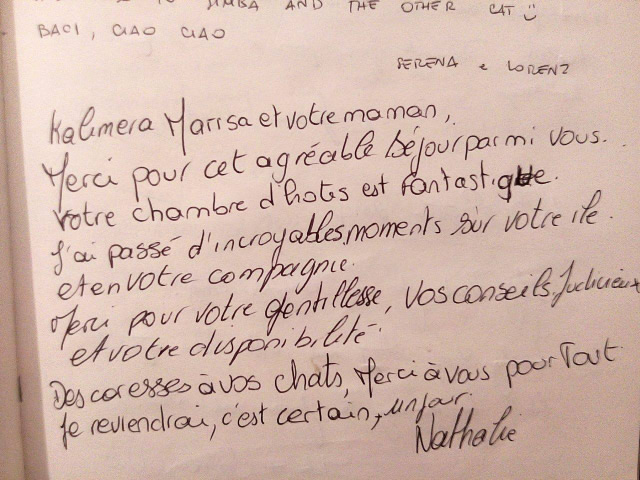 SIMBA AND THE OTHER CAT
BACI, CIAO CIAO
SERENA e LORENZ
Kalimera Marisa et votre maman,
Merci pour cet agréable séjour parmi vous.
votre chambre d'hotes est fantastique.
J'ai passé d'incroyables moments sur votre ile.
et en votre compagnie.
Merci pour votre gentillesse, vos conseils judicieux
et votre disponibilité.
Des caresses à vos chats, Merci à vous pour Tout
Je reviendrai, c'est certain, un jour.
Nathalie